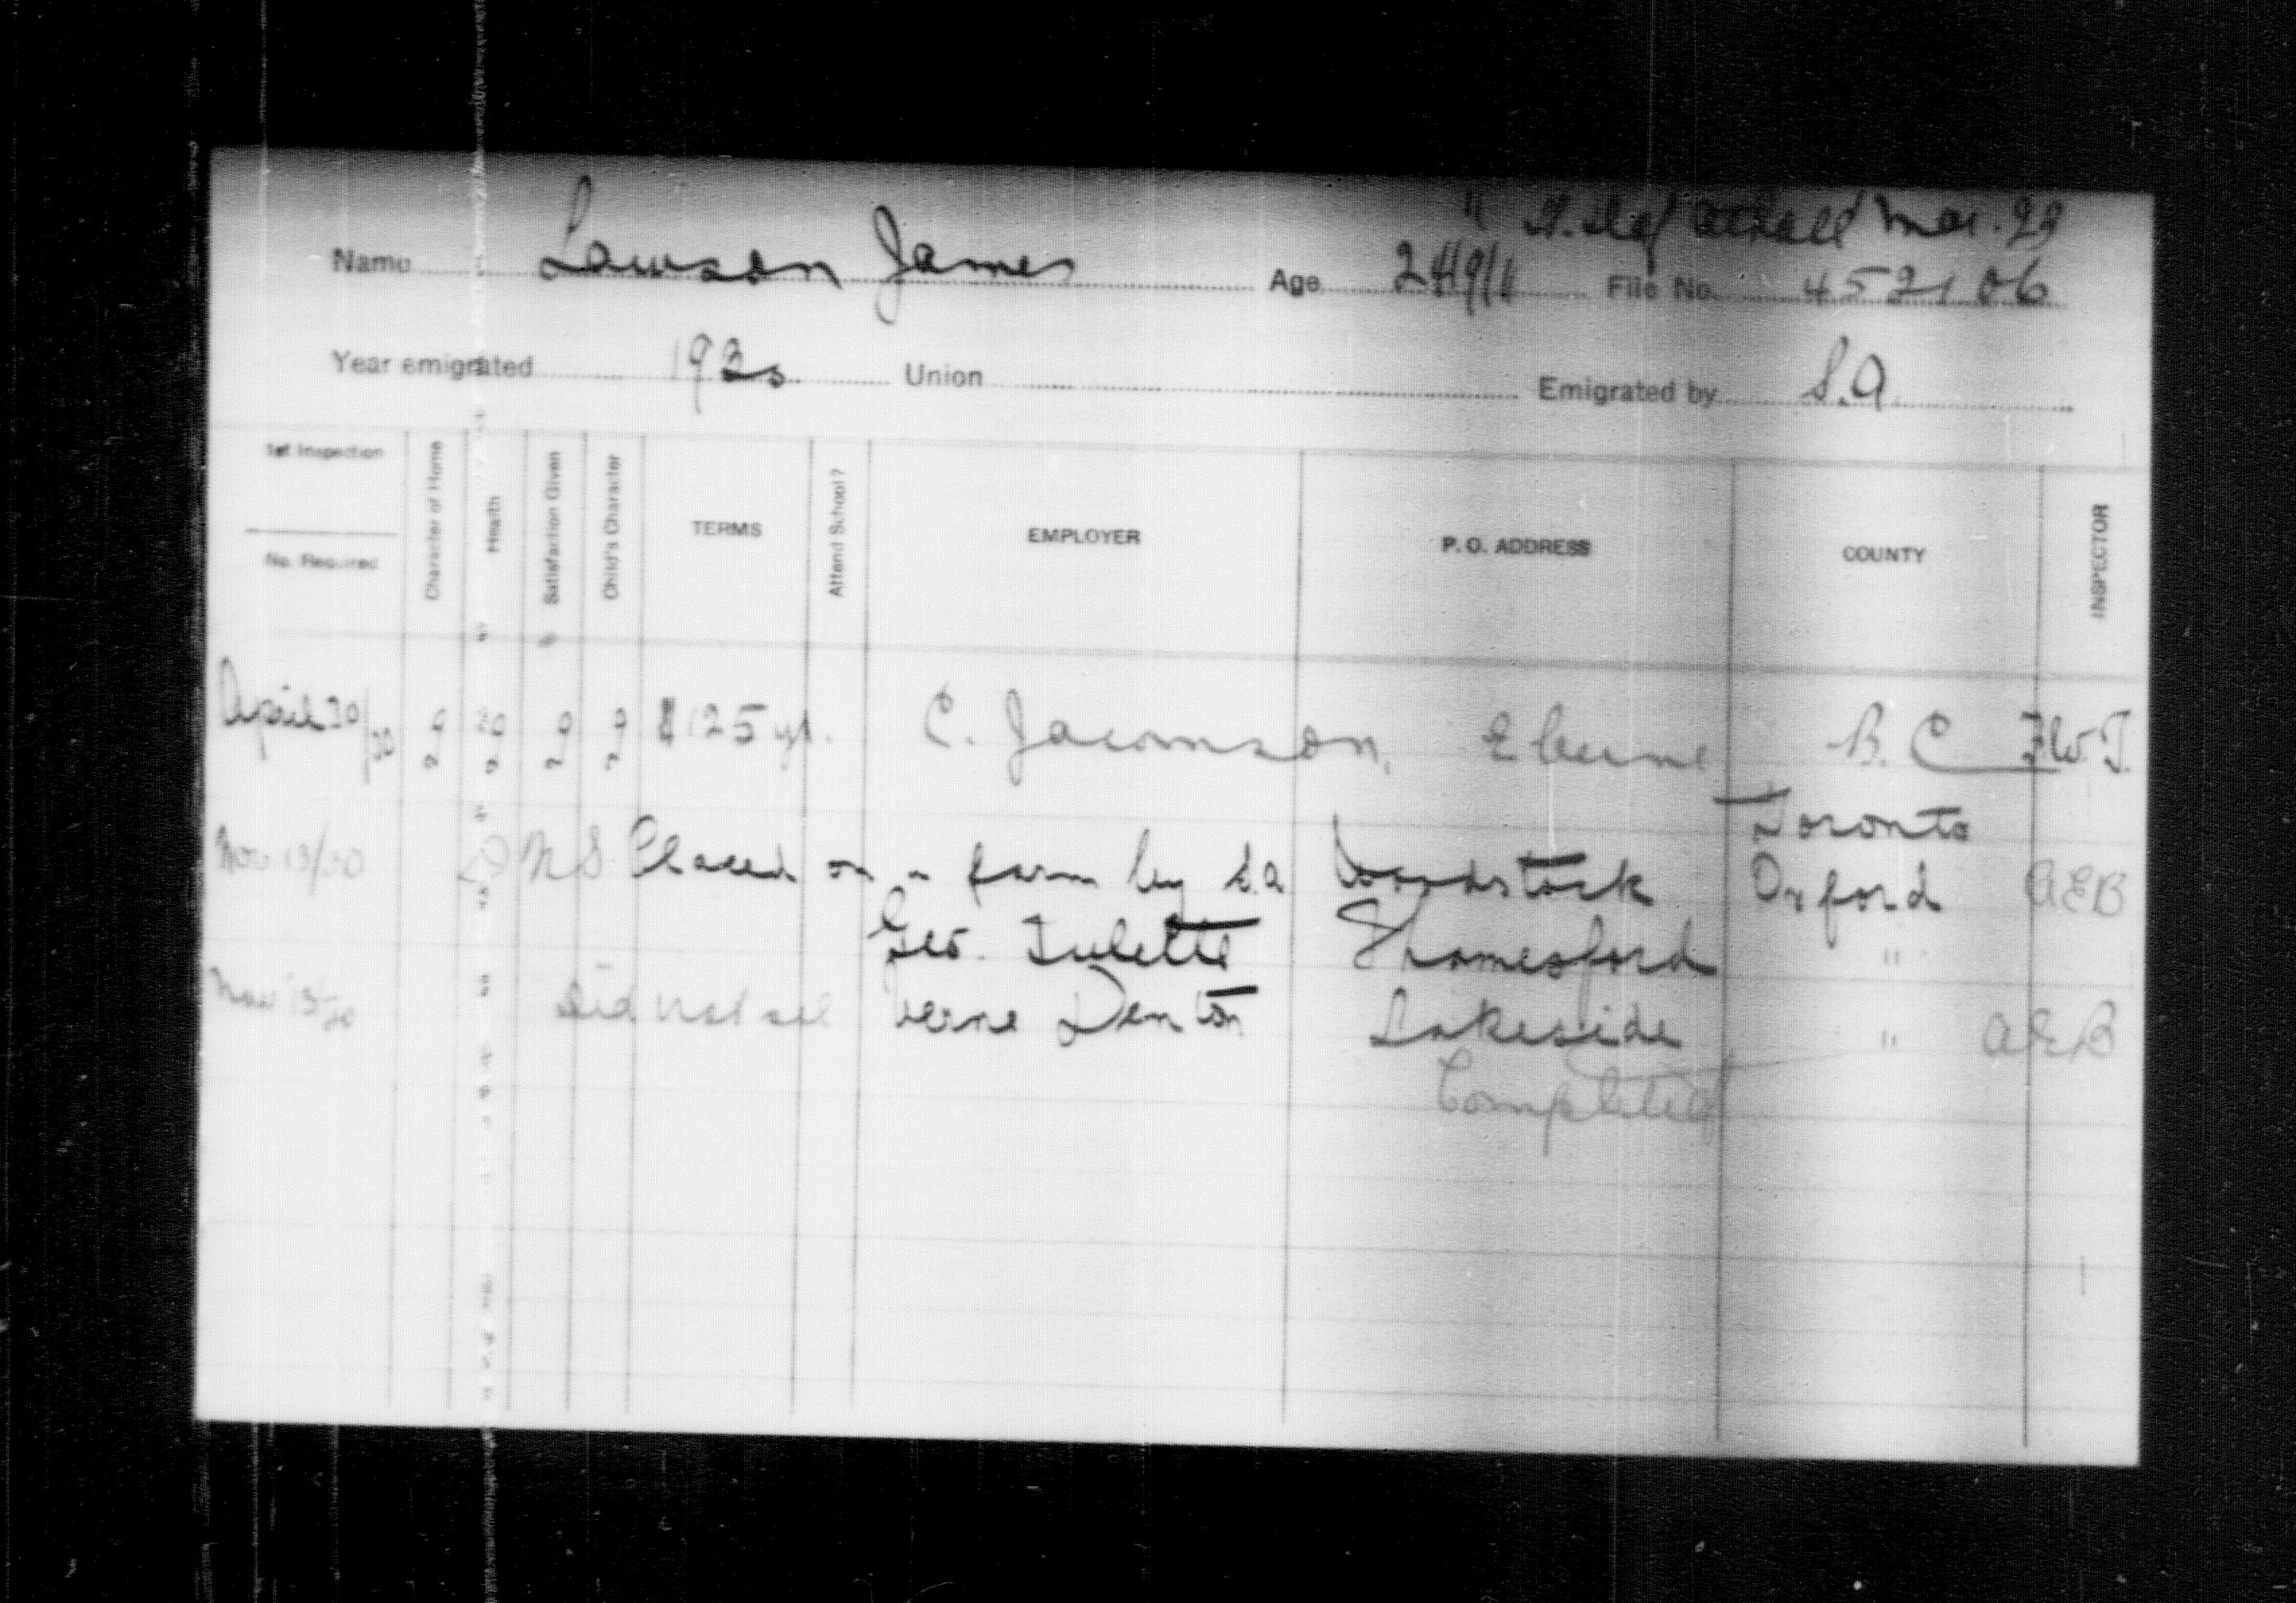 Mar. 29
Name Lawson James Age 24/9/11 File No. 452106
Year emigrated 1930 Union Emigrated by S.A.
1st Inspection
No. Required
Character of Home
Health
Satisfaction Given
Child's Character
TERMS
Attend School?
EMPLOYER
P. O. ADDRESS
COUNTY
INSPECTOR
April 30/30 $125 yr. C. Eburne B. C F.W.T.
Toronto
Nov 13/30 D N S Placed on a farm by S.A Woodstock Oxford AEB
Geo. Tulette Thamesford "
Nov 13/30 Did not see Verne Denton Lakeside " AEB
Completed